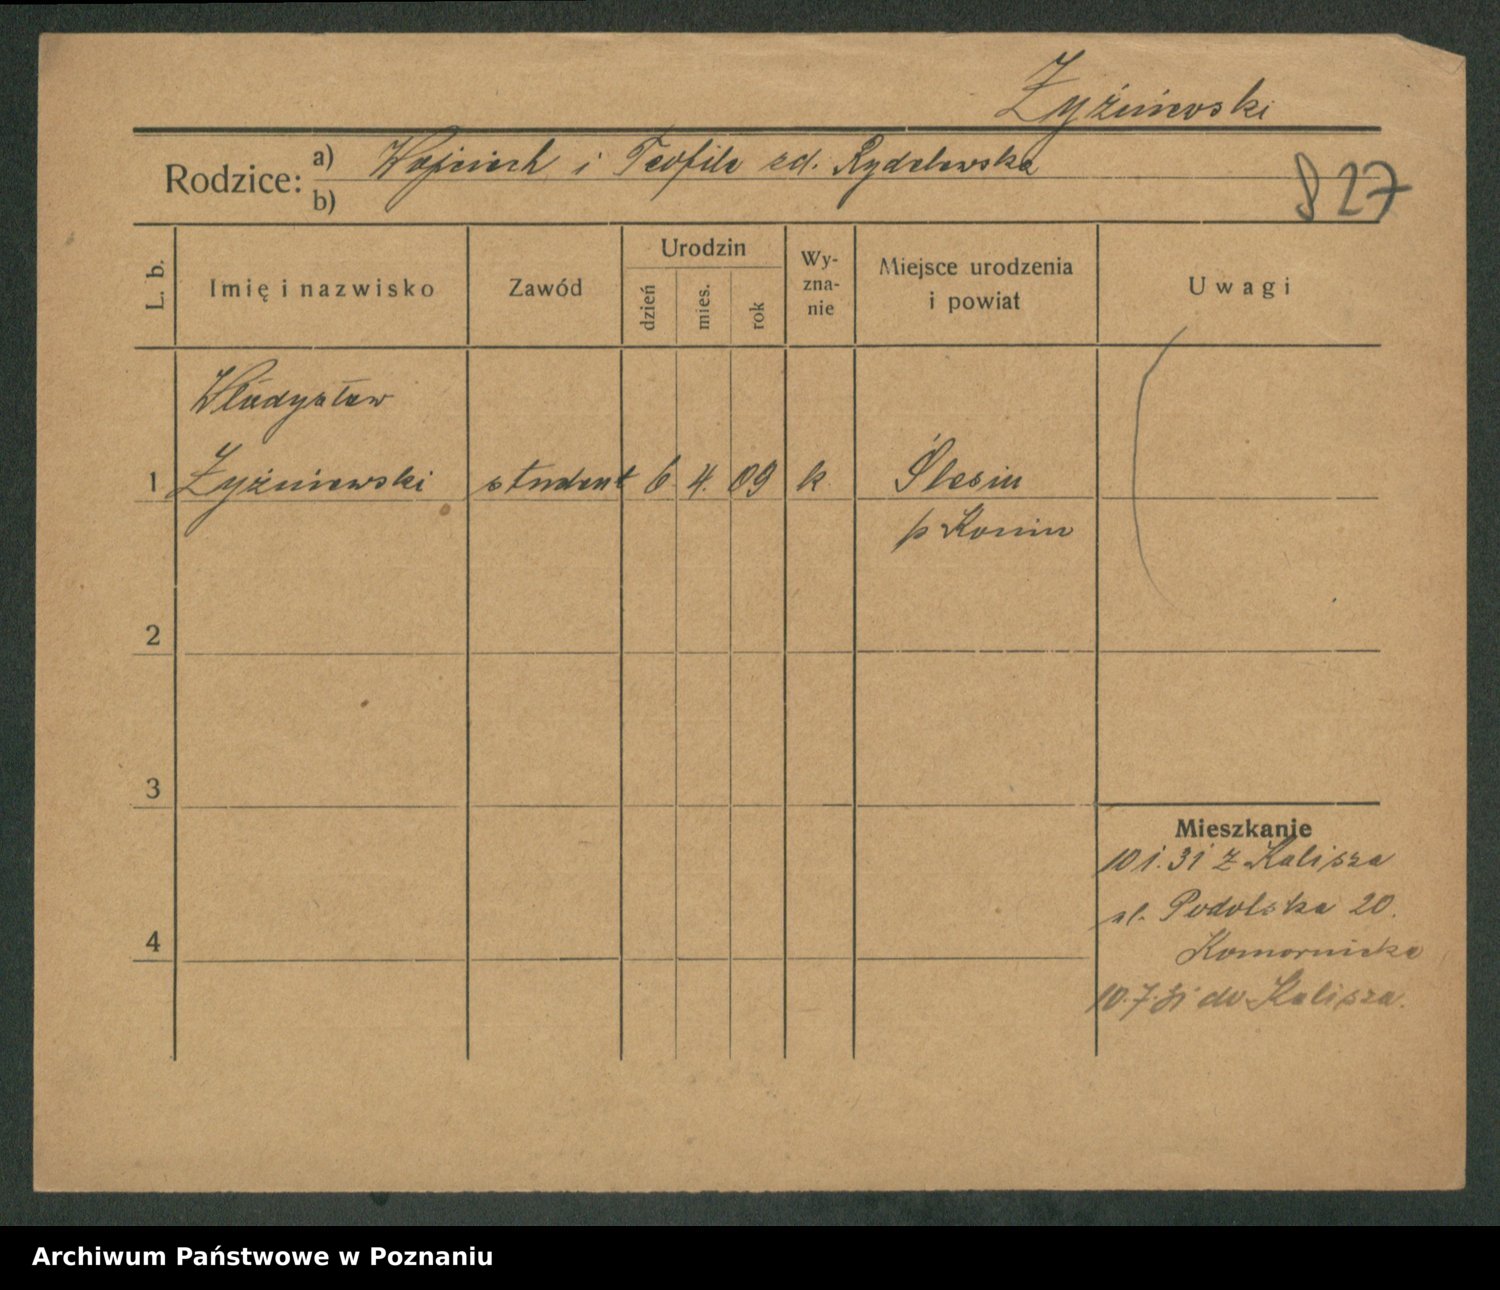 Żyźniewski
Rodzice: a) Wojciech i Teofila zd. Rydzlewska
b)
827
L. b.
Imię i nazwisko
Zawód
Urodzin
dzień
mies.
rok
Wy-
zna-
nie
Miejsce urodzenia
i powiat
Uwagi
Władysław
1 Żyźniewski student 6. 4. 09 k. Ślesin
p Konin
2
3
4
Mieszkanie
10.1.31 z Kalisza
ul. Podolska 20.
Komornicka
10.7.31 do Kalisza.
Archiwum Państwowe w Poznaniu